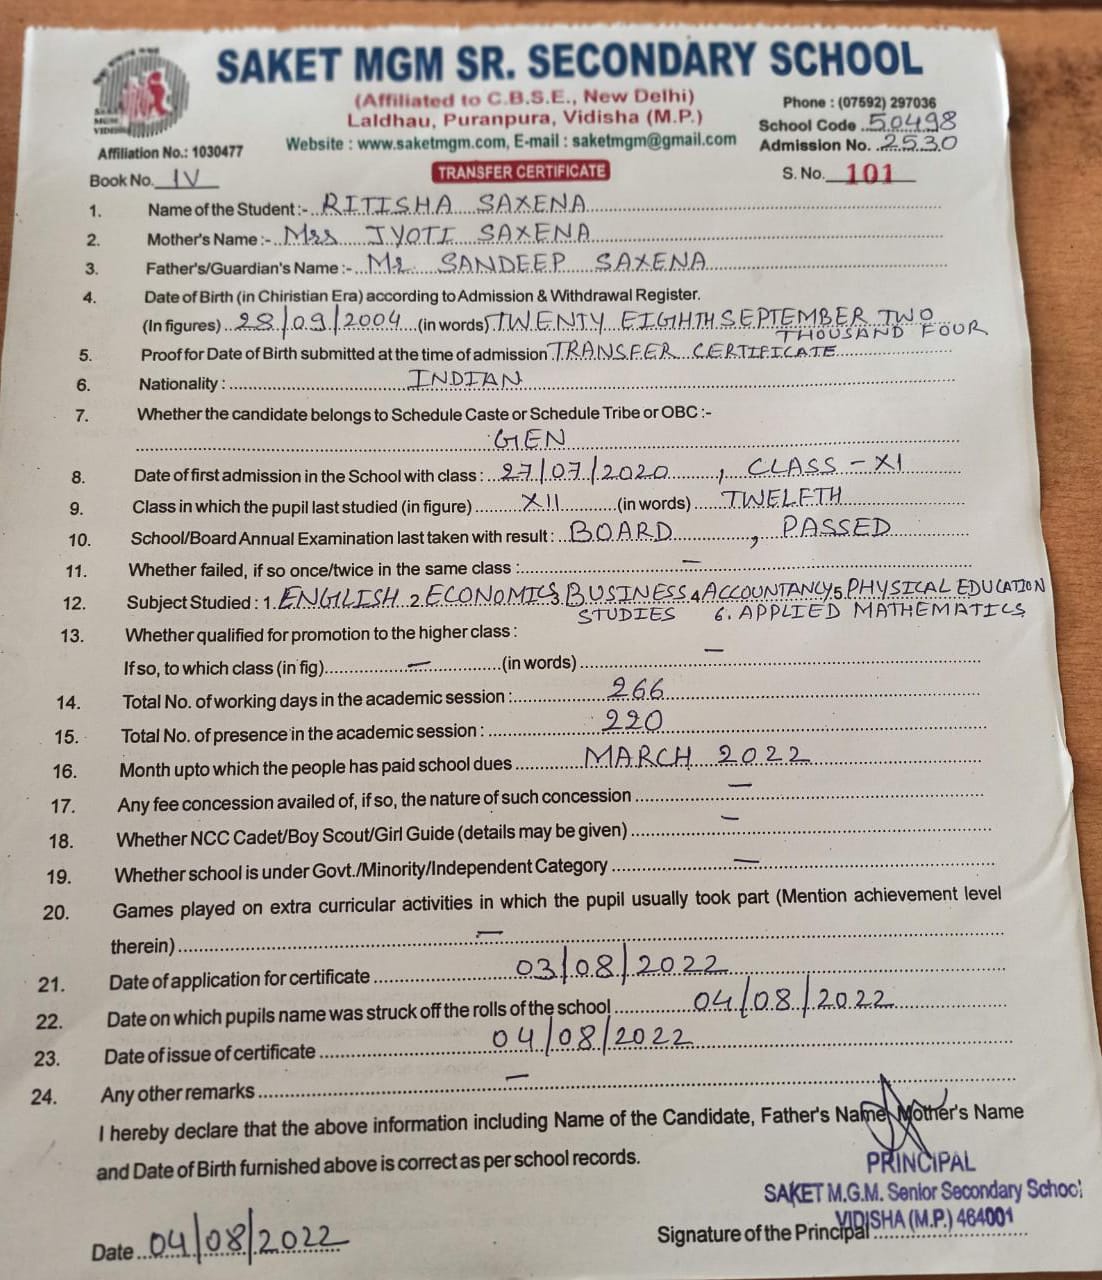 SAKET MGM SR. SECONDARY SCHOOL
(Affiliated to C.B.S.E., New Delhi)
Laldhau, Puranpura, Vidisha (M.P.)
Website : www.saketmgm.com, E-mail : saketmgm@gmail.com
Phone : (07592) 297036
School Code 50498
Admission No. 2530
SAKET
MGM
VIDISHA
Affiliation No.: 1030477
Book No. IV
TRANSFER CERTIFICATE
S. No. 101
1. Name of the Student :- RITISHA SAXENA
2. Mother's Name :- Mrs JYOTI SAXENA
3. Father's/Guardian's Name :- Mr. SANDEEP SAXENA
4. Date of Birth (in Chiristian Era) according to Admission & Withdrawal Register.
(In figures) 28/09/2004 (in words) TWENTY EIGHTH SEPTEMBER TWO
THOUSAND FOUR
5. Proof for Date of Birth submitted at the time of admission TRANSFER CERTIFICATE
6. Nationality : INDIAN
7. Whether the candidate belongs to Schedule Caste or Schedule Tribe or OBC :-
GEN
8. Date of first admission in the School with class : 27/07/2020, CLASS - XI
9. Class in which the pupil last studied (in figure) XII (in words) TWELFTH
10. School/Board Annual Examination last taken with result : BOARD, PASSED
11. Whether failed, if so once/twice in the same class : —
12. Subject Studied : 1. ENGLISH 2. ECONOMICS 3. BUSINESS 4. ACCOUNTANCY 5. PHYSICAL EDUCATION
STUDIES 6. APPLIED MATHEMATICS
13. Whether qualified for promotion to the higher class :
If so, to which class (in fig) — (in words) —
14. Total No. of working days in the academic session : 266
15. Total No. of presence in the academic session : 220
16. Month upto which the people has paid school dues MARCH 2022
17. Any fee concession availed of, if so, the nature of such concession —
18. Whether NCC Cadet/Boy Scout/Girl Guide (details may be given) —
19. Whether school is under Govt./Minority/Independent Category —
20. Games played on extra curricular activities in which the pupil usually took part (Mention achievement level
therein) —
21. Date of application for certificate 03/08/2022
22. Date on which pupils name was struck off the rolls of the school 04/08/2022
23. Date of issue of certificate 04/08/2022
24. Any other remarks —
I hereby declare that the above information including Name of the Candidate, Father's Name, Mother's Name
and Date of Birth furnished above is correct as per school records.
PRINCIPAL
SAKET M.G.M. Senior Secondary School
VIDISHA (M.P.) 464001
Date 04/08/2022
Signature of the Principal